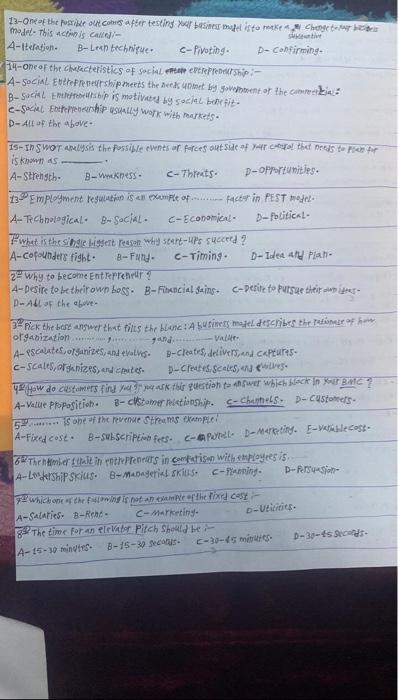 13-One of the possible outcomes after testing your business model is to make a substantive change to your business
model. This action is called:-
A-Iteration. B-Lean technique. C-Pivoting. D-Confirming.
14-One of the characteristics of social entrepreneurship:-
A-Social Entrepreneurship meets the needs unmet by government or the commercial.
B-Social Entrepreneurship is motivated by social benefit.
C-Social Entrepreneurship usually work with markets.
D-All of the above.
15-In SWOT analysis the possible events or forces outside of your control that needs to plan for
is known as
A-Strength. B-Weakness. C-Threats. D-Opportunities.
13- Employment regulation is an example of .......... factor in PEST model.
A-Technological. B-Social. C-Economical. D-Political.
1- What is the single biggest reason why start-ups succeed?
A-Cofounders fight. B-Fund. C-Timing. D-Idea and Plan.
2- Why to become Entrepreneur?
A-Desire to be their own boss. B-Financial gains. C-Desire to pursue their own ideas.
D-All of the above.
3- Pick the best answer that fills the blanc: A business model describes the rationale of how
organization ............, ........., and ......... value.
A-escalates, organizes, and evolves. B-Creates, delivers, and captures.
C-Scales, organizes, and creates. D-Creates, scales, and evolves.
4- How do customers find you? you ask this question to answer which block in your BMC?
A-Value Proposition. B-Customer relationship. C-Channels. D-Customers.
5- .......... is one of the revenue streams example:
A-Fixed cost. B-Subscription fees. C-Payroll. D-Marketing. E-Variable cost.
6- The number 1 trait in entrepreneurs in comparison with employees is .....
A-Leadership skills. B-Managerial skills. C-Planning. D-Persuasion.
7- Which one of the following is not an example of the fixed cost:-
A-Salaries. B-Rent. C-Marketing. D-Utilities.
8- The time for an elevator Pitch should be:-
A-15-30 minutes. B-15-30 seconds. C-30-45 minutes. D-30-45 seconds.